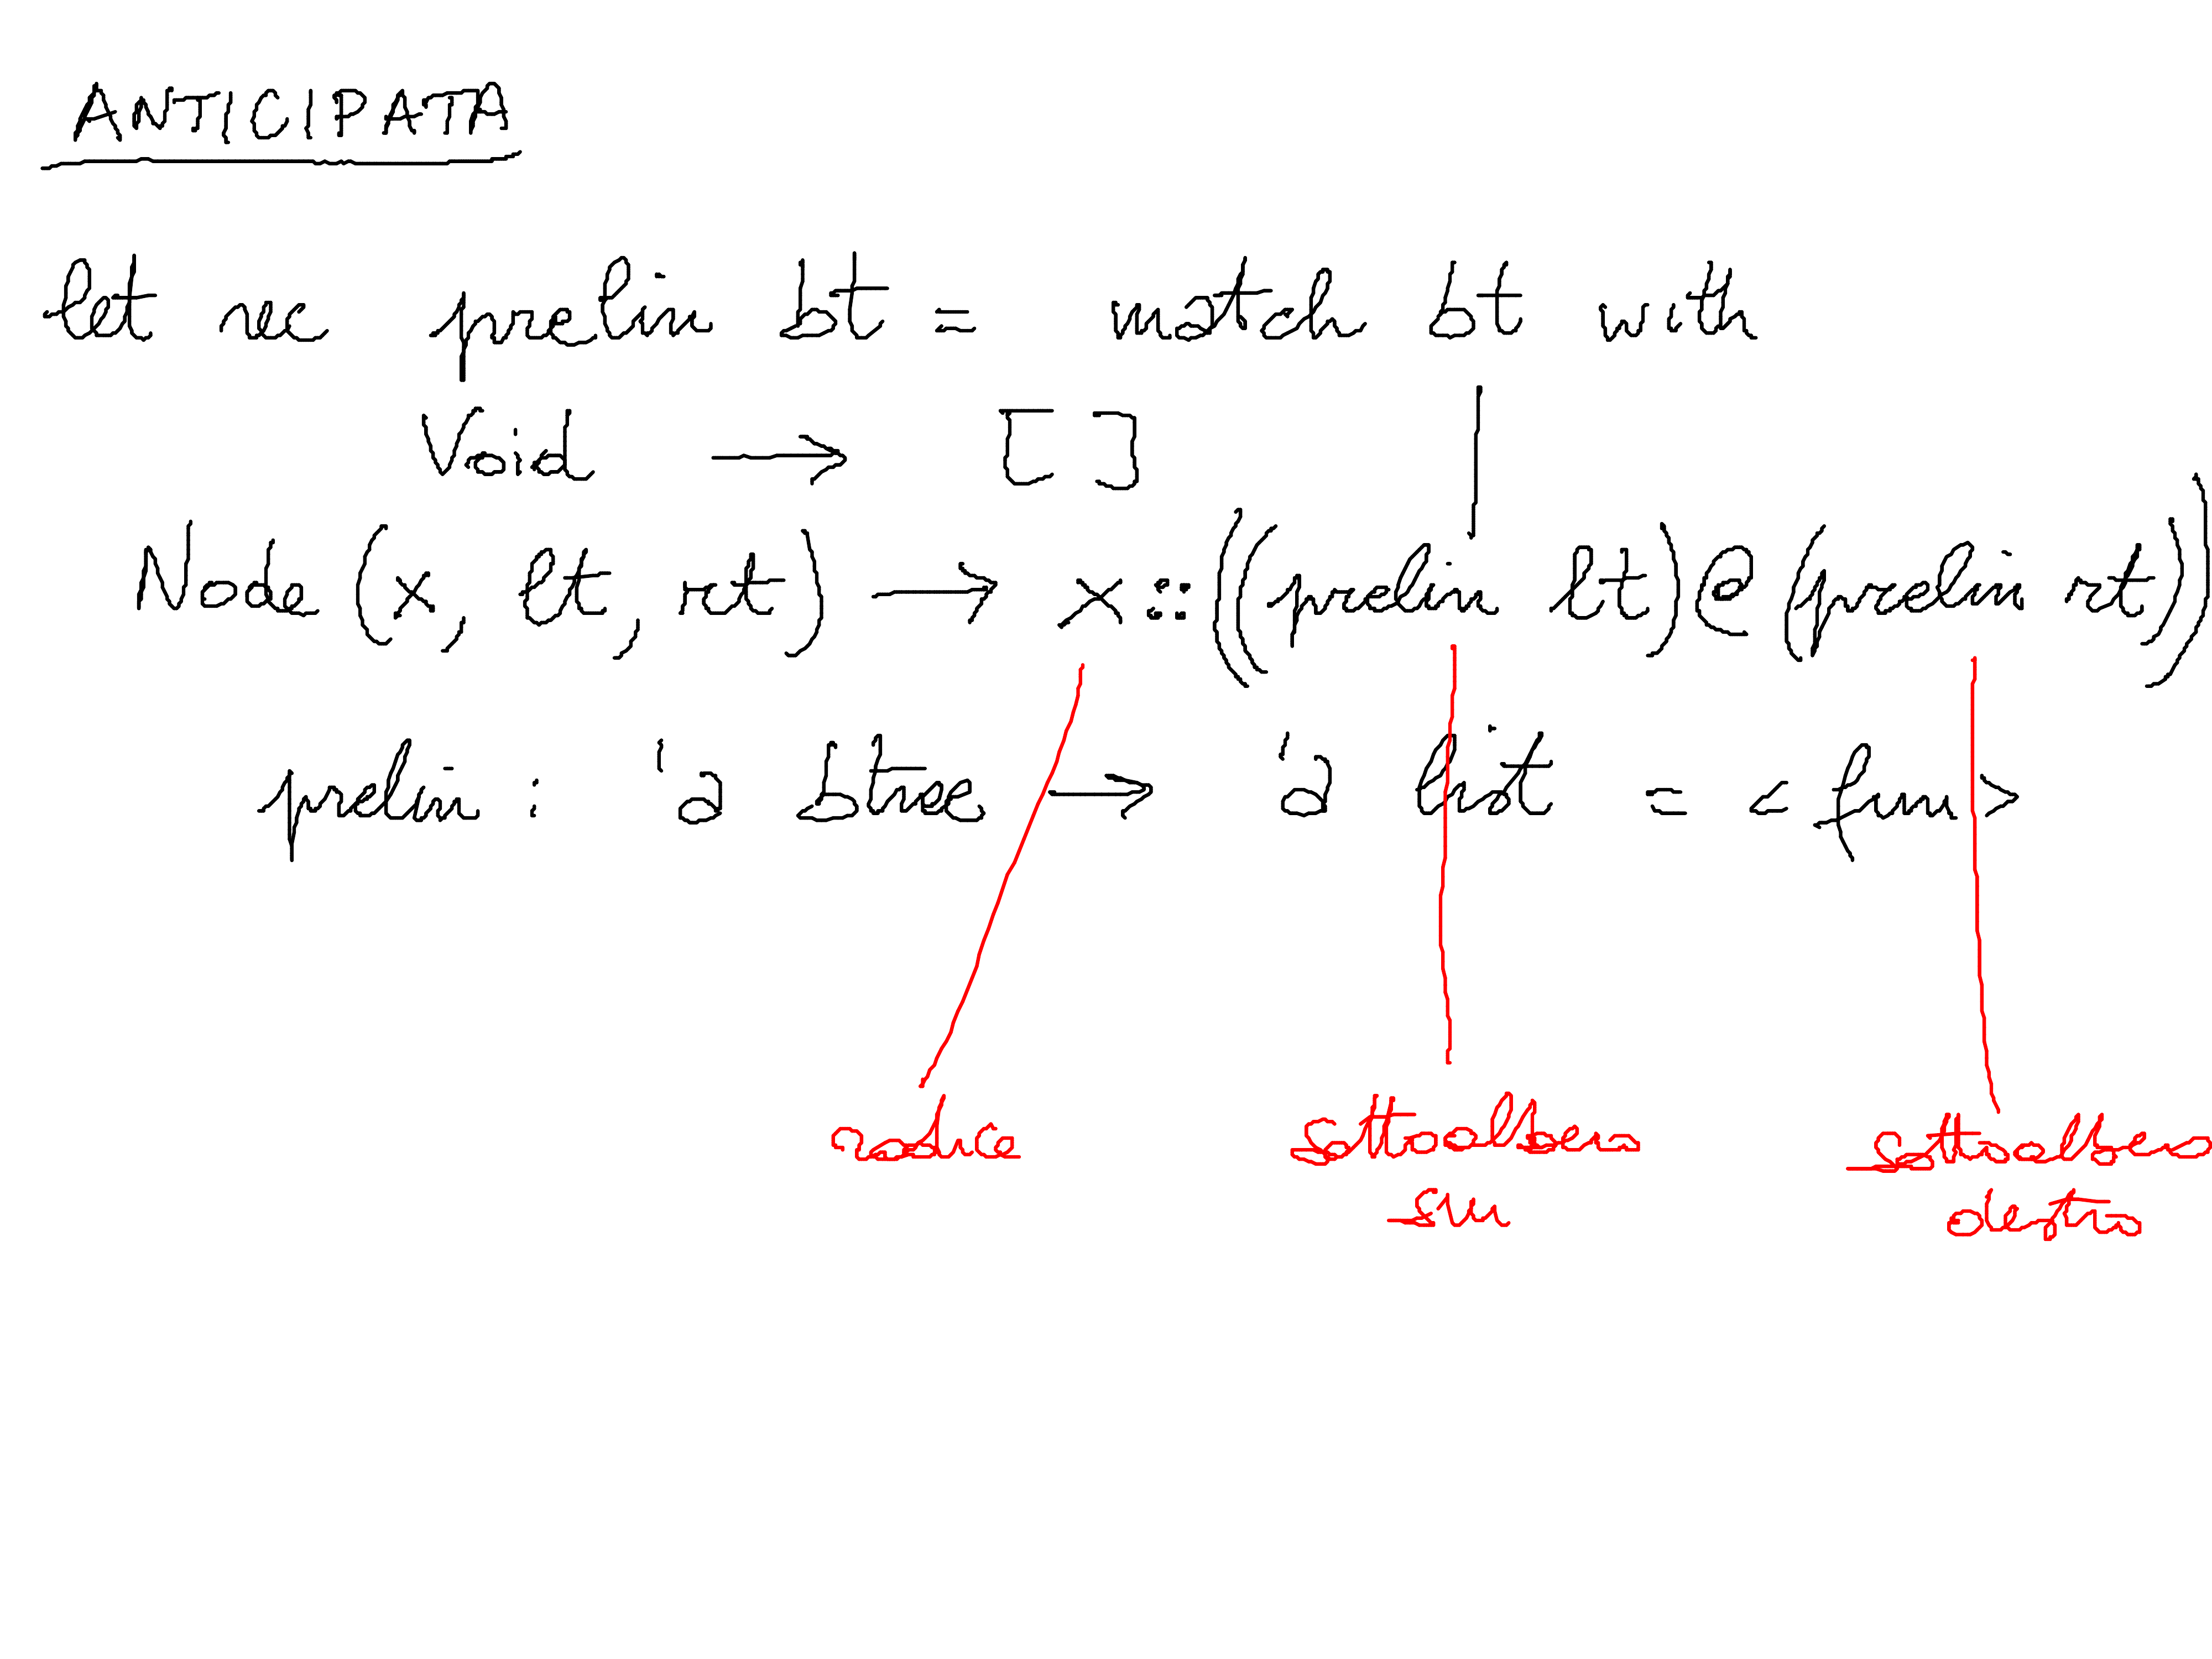 ANTICIPATA
let rec prelin bt = match bt with
Void → [ ] |
Node (x, lt, rt) → x::((prelin lt)@(prelin rt))
prelin : 'a btree → 'a list = <fun>
radice sottoalbero sottoalbero
sin destro